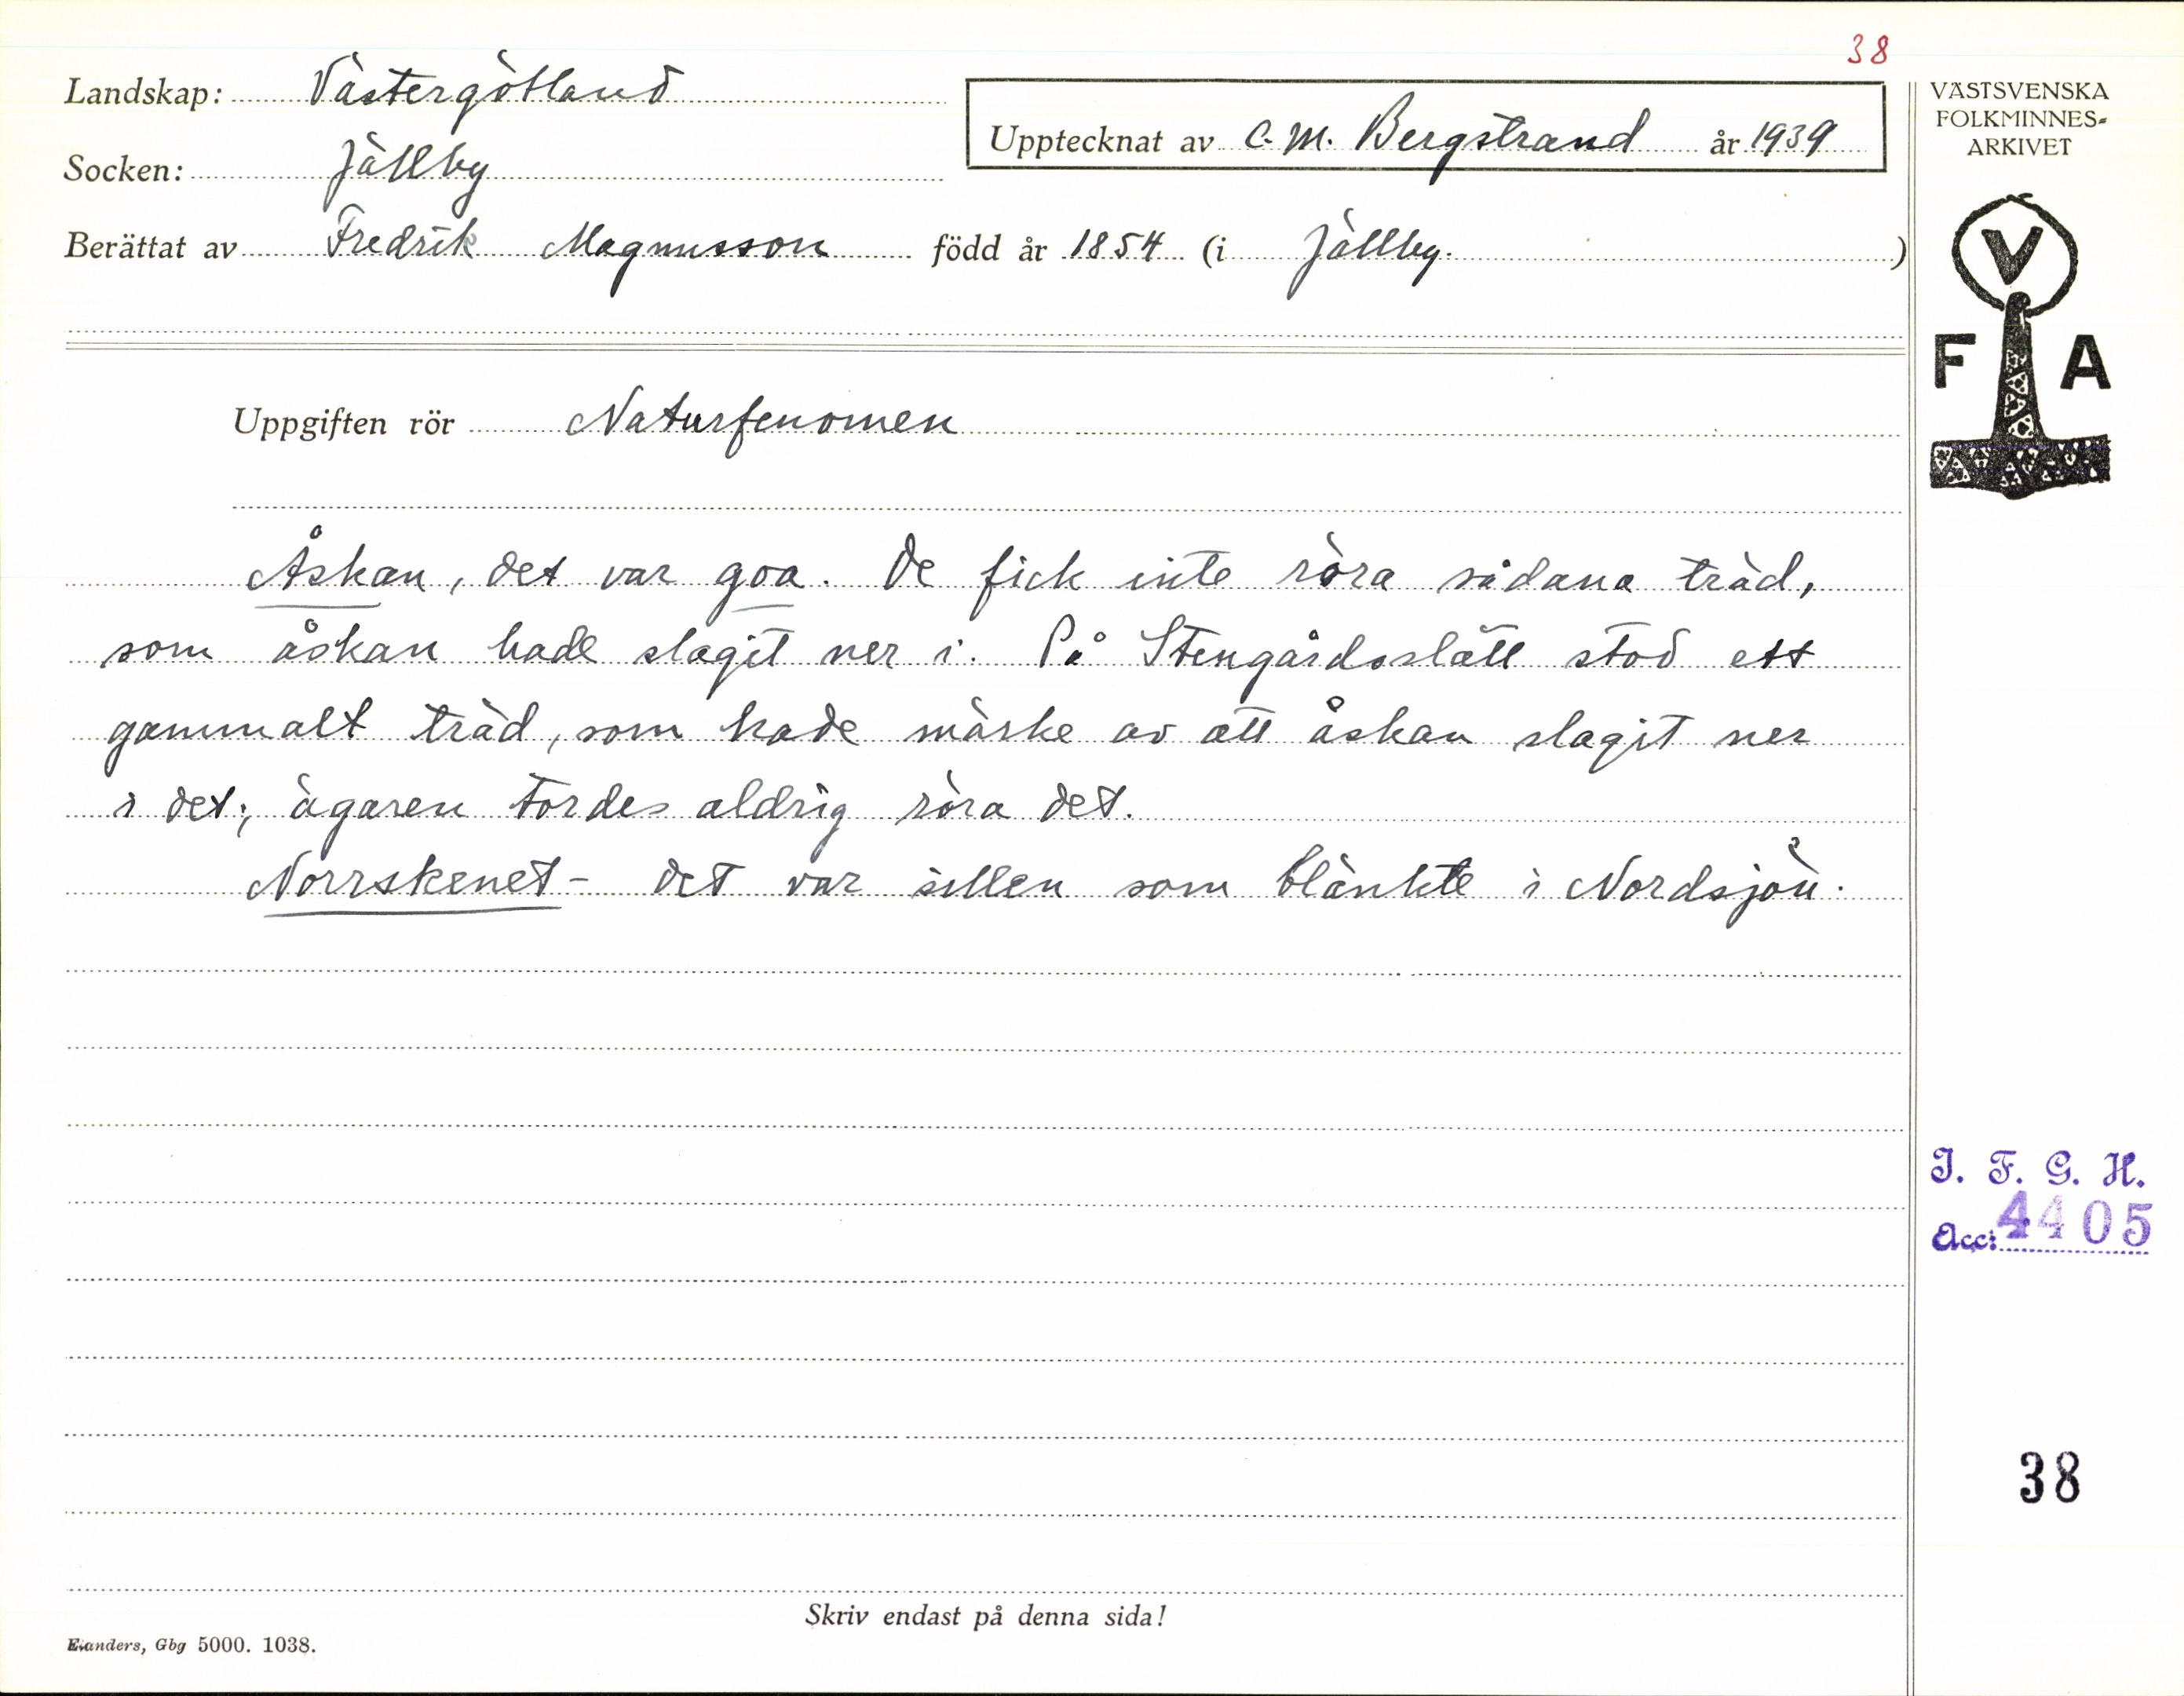 38
Landskap: Västergötland
Upptecknat av C. M. Bergstrand år 1939
Socken: Jällby
Berättat av Fredrik Magnusson född år 1854 (i Jällby.)
Uppgiften rör Naturfenomen
Åskan, det var goa. De fick inte röra sådana träd,
som åskan hade slagit ner i. På Stengårdsslätt stod ett
gammalt träd, som hade märke av att åskan slagit ner
i det; ägaren tordes aldrig röra det.
Norrskenet - det var sillen som blänkte i Nordsjön.
Skriv endast på denna sida!
Elanders, Gbg 5000. 1038.
VÄSTSVENSKA
FOLKMINNES-
ARKIVET
V
F A
I. F. G. H.
Acc: 4405
38